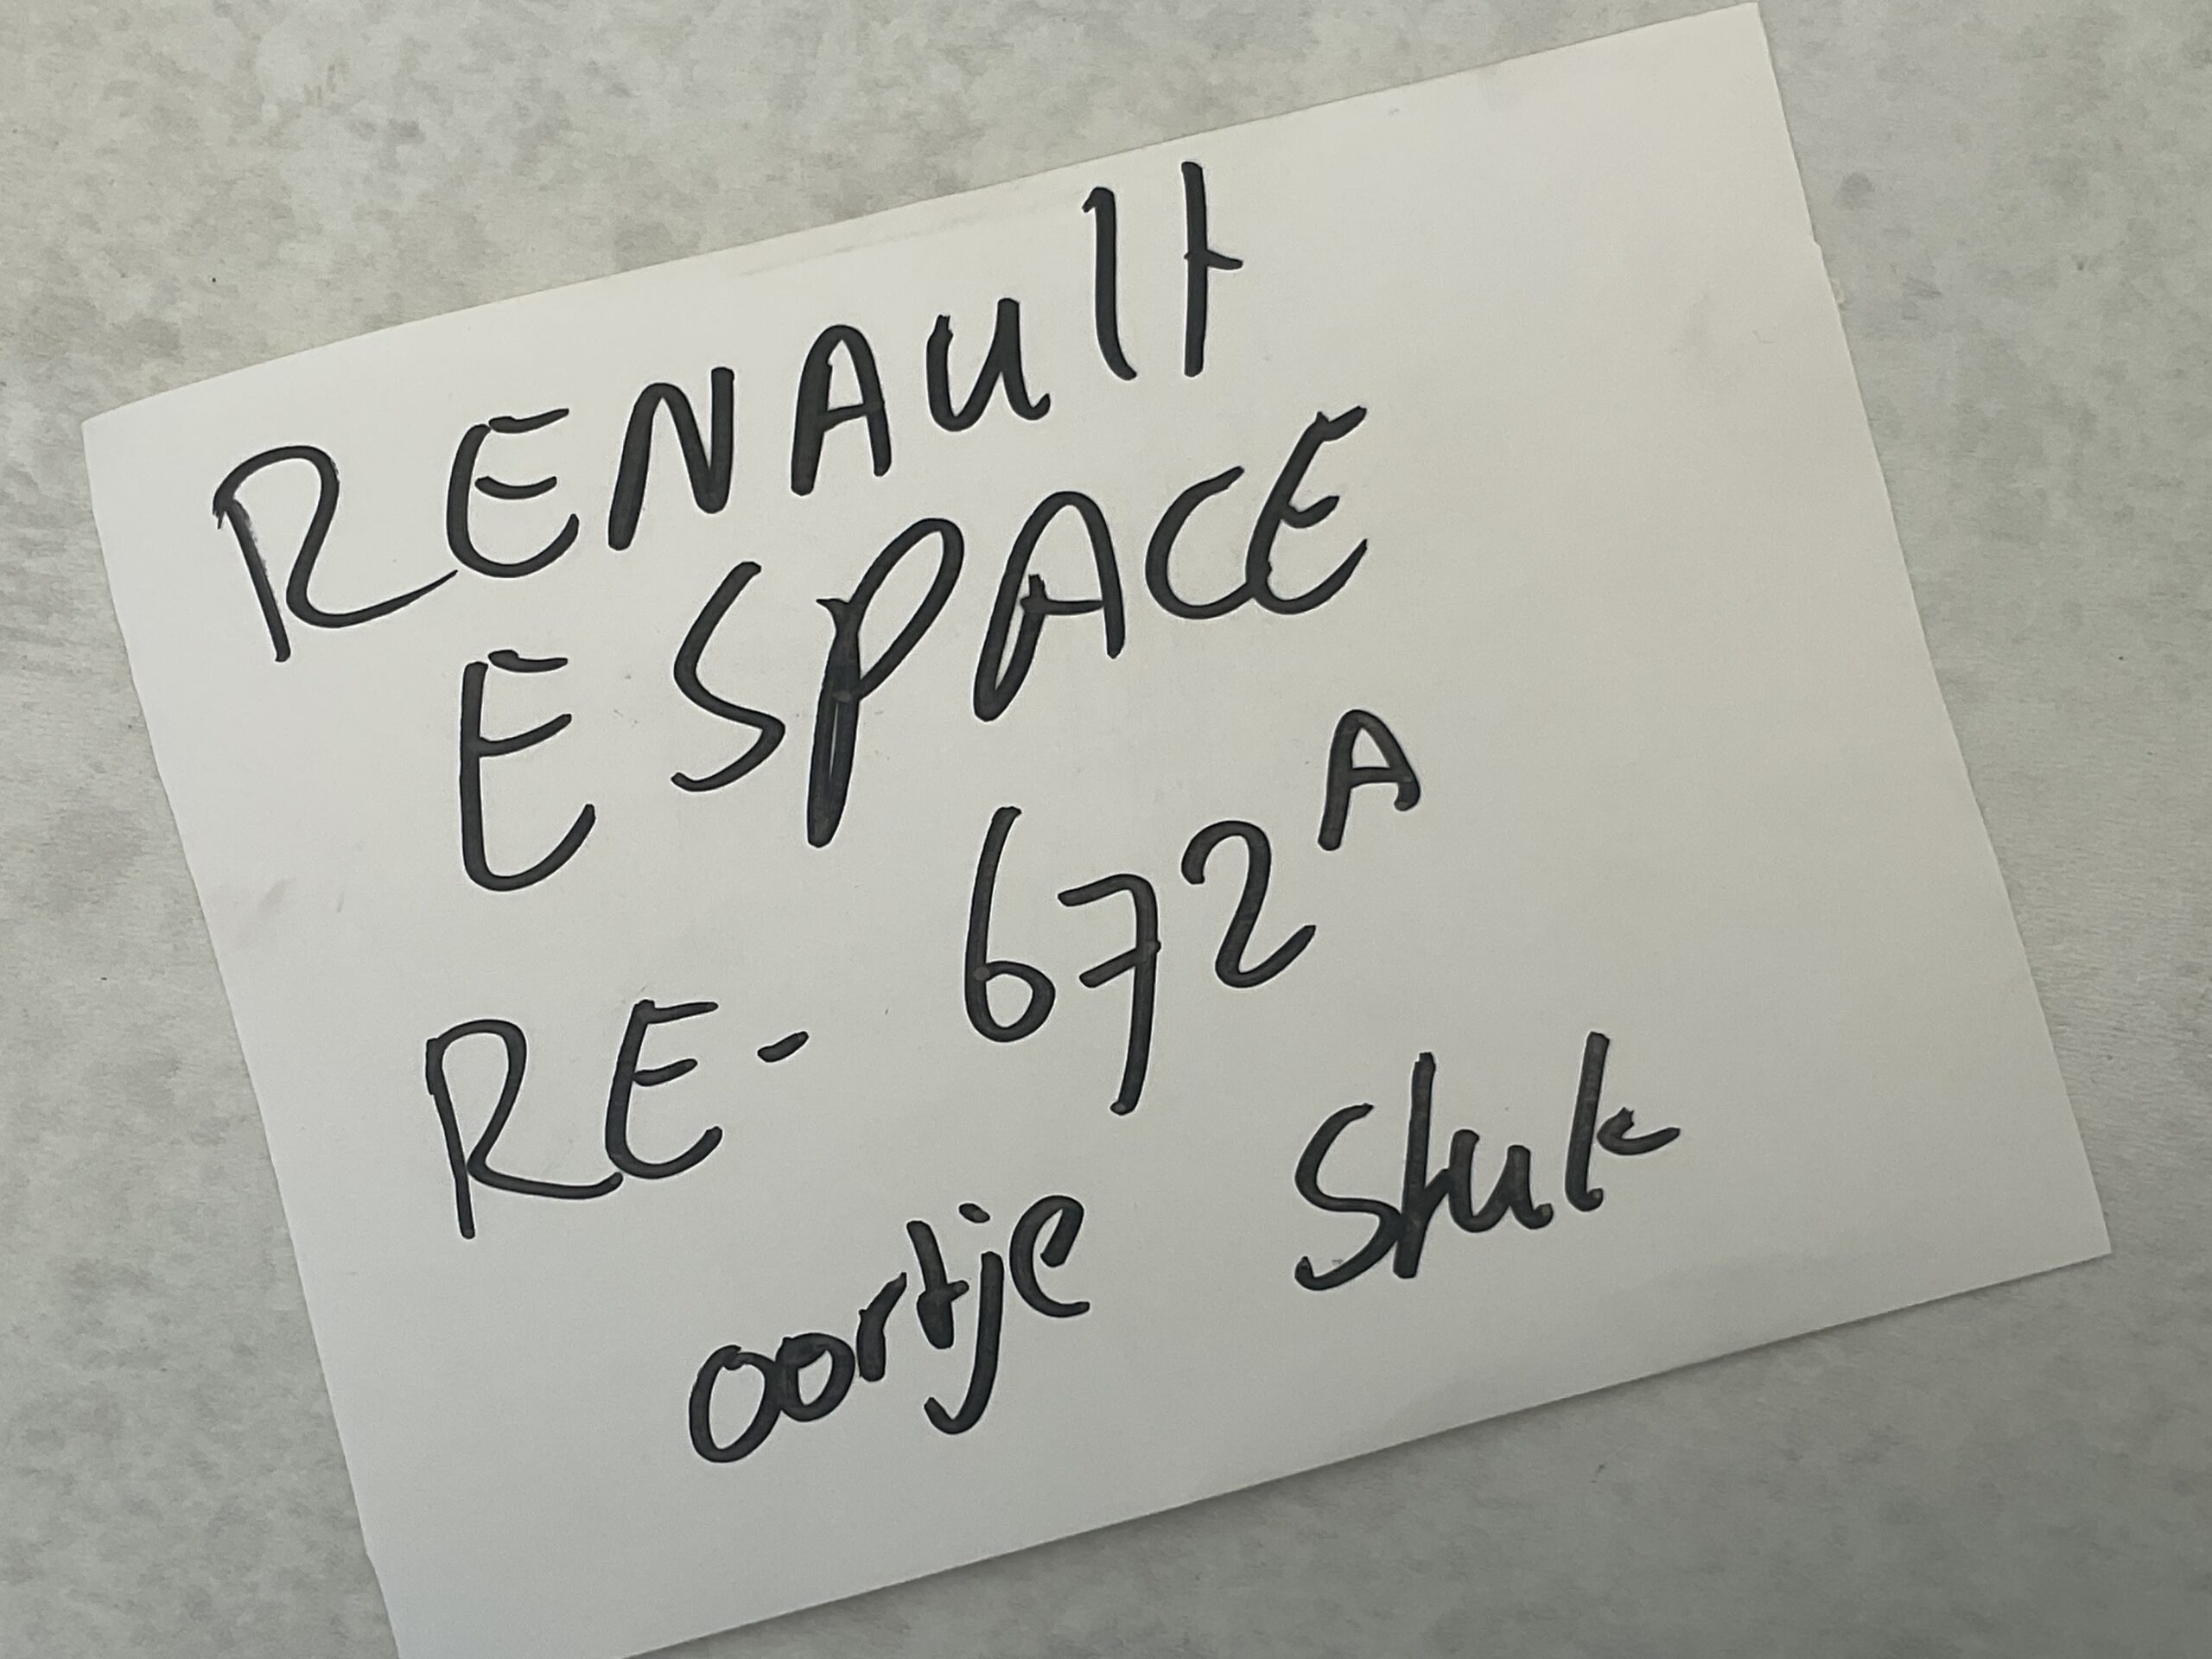 RENAUlt
ESPACE
RE- 672A
oortje stuk